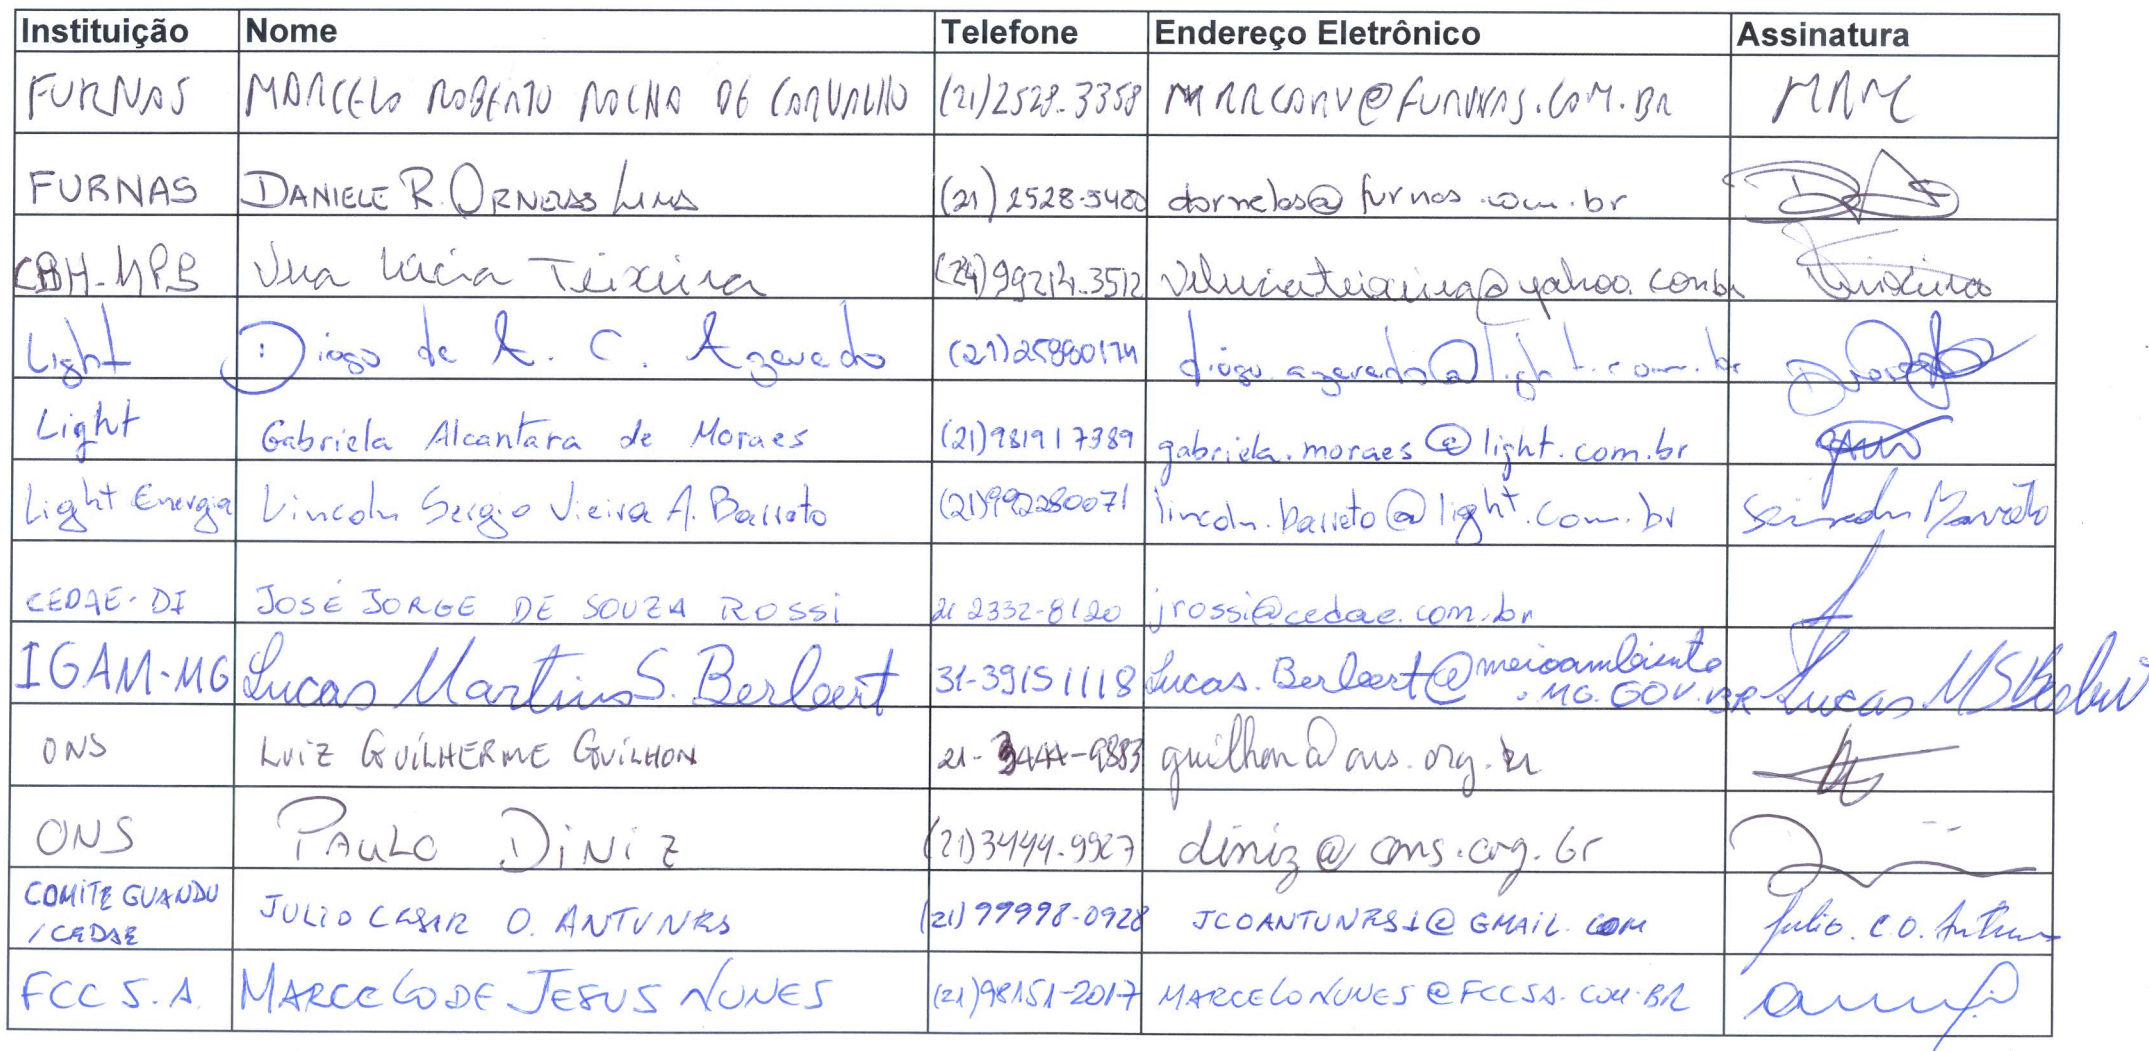 Instituição Nome Telefone Endereço Eletrônico Assinatura
FURNAS MARCELO ROBERTO ROCHA DE CARVALHO (21)2528-3358 MRRCARV@FURNAS.COM.BR MRRC
FURNAS DANIELE R. ORNELAS LIMA (21) 2528-5400 dornelas@furnas.com.br
CBH-MPS Vera Lúcia Teixeira (24)99214-3512 veluciateixeira@yahoo.com.br Teixeira
Light Diogo de A. C. Azevedo (21)25880174 diogo.azevedo@light.com.br
Light Gabriela Alcantara de Moraes (21)981917389 gabriela.moraes@light.com.br
Light Energia Lincoln Sergio Vieira A. Barreto (21)992280071 lincoln.barreto@light.com.br Barreto
CEDAE-DI JOSÉ JORGE DE SOUZA ROSSI 21 2332-8120 jrossi@cedae.com.br
IGAM-MG Lucas Martins S. Berbert 31-39151118 Lucas.Berbert@meioambiente
.MG.GOV.BR Lucas MSBerbert
ONS LUIZ GUILHERME GUILHON 21-3444-9883 guilhon@ons.org.br
ONS PAULO DINIZ (21)3444-9927 diniz@ons.org.br
COMITE GUANDU
/CEDAE JULIO CESAR O. ANTUNES (21)99998-0928 JCOANTUNES1@GMAIL.COM Julio.C.O.Antunes
FCC S.A. MARCELO DE JESUS NUNES (21)98151-2017 MARCELONUNES@FCCSA.COM.BR